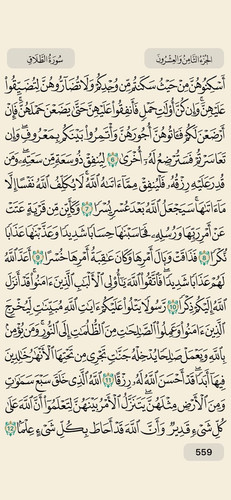 الجزء الثامن والعشرون
سورة الطلاق
أَسْكِنُوهُنَّ مِنْ حَيْثُ سَكَنتُم مِّن وُجْدِكُمْ وَلَا تُضَآرُّوهُنَّ لِتُضَيِّقُوا۟
عَلَيْهِنَّ ۚ وَإِن كُنَّ أُو۟لَـٰتِ حَمْلٍ فَأَنفِقُوا۟ عَلَيْهِنَّ حَتَّىٰ يَضَعْنَ حَمْلَهُنَّ ۚ فَإِنْ
أَرْضَعْنَ لَكُمْ فَـَٔاتُوهُنَّ أُجُورَهُنَّ ۖ وَأْتَمِرُوا۟ بَيْنَكُم بِمَعْرُوفٍ ۖ وَإِن
تَعَاسَرْتُمْ فَسَتُرْضِعُ لَهُۥٓ أُخْرَىٰ ٦ لِيُنفِقْ ذُو سَعَةٍ مِّن سَعَتِهِۦ ۖ وَمَن
قُدِرَ عَلَيْهِ رِزْقُهُۥ فَلْيُنفِقْ مِمَّآ ءَاتَىٰهُ ٱللَّهُ ۚ لَا يُكَلِّفُ ٱللَّهُ نَفْسًا إِلَّا
مَآ ءَاتَىٰهَا ۚ سَيَجْعَلُ ٱللَّهُ بَعْدَ عُسْرٍ يُسْرًا ٧ وَكَأَيِّن مِّن قَرْيَةٍ عَتَتْ
عَنْ أَمْرِ رَبِّهَا وَرُسُلِهِۦ فَحَاسَبْنَـٰهَا حِسَابًا شَدِيدًا وَعَذَّبْنَـٰهَا عَذَابًا
نُّكْرًا ٨ فَذَاقَتْ وَبَالَ أَمْرِهَا وَكَانَ عَـٰقِبَةُ أَمْرِهَا خُسْرًا ٩ أَعَدَّ ٱللَّهُ
لَهُمْ عَذَابًا شَدِيدًا ۖ فَٱتَّقُوا۟ ٱللَّهَ يَـٰٓأُو۟لِى ٱلْأَلْبَـٰبِ ٱلَّذِينَ ءَامَنُوا۟ ۚ قَدْ أَنزَلَ
ٱللَّهُ إِلَيْكُمْ ذِكْرًا ١٠ رَّسُولًا يَتْلُوا۟ عَلَيْكُمْ ءَايَـٰتِ ٱللَّهِ مُبَيِّنَـٰتٍ لِّيُخْرِجَ
ٱلَّذِينَ ءَامَنُوا۟ وَعَمِلُوا۟ ٱلصَّـٰلِحَـٰتِ مِنَ ٱلظُّلُمَـٰتِ إِلَى ٱلنُّورِ ۚ وَمَن يُؤْمِنۢ
بِٱللَّهِ وَيَعْمَلْ صَـٰلِحًا يُدْخِلْهُ جَنَّـٰتٍ تَجْرِى مِن تَحْتِهَا ٱلْأَنْهَـٰرُ خَـٰلِدِينَ
فِيهَآ أَبَدًا ۖ قَدْ أَحْسَنَ ٱللَّهُ لَهُۥ رِزْقًا ١١ ٱللَّهُ ٱلَّذِى خَلَقَ سَبْعَ سَمَـٰوَٰتٍ
وَمِنَ ٱلْأَرْضِ مِثْلَهُنَّ يَتَنَزَّلُ ٱلْأَمْرُ بَيْنَهُنَّ لِتَعْلَمُوٓا۟ أَنَّ ٱللَّهَ عَلَىٰ
كُلِّ شَىْءٍ قَدِيرٌ وَأَنَّ ٱللَّهَ قَدْ أَحَاطَ بِكُلِّ شَىْءٍ عِلْمًۢا ١٢
559